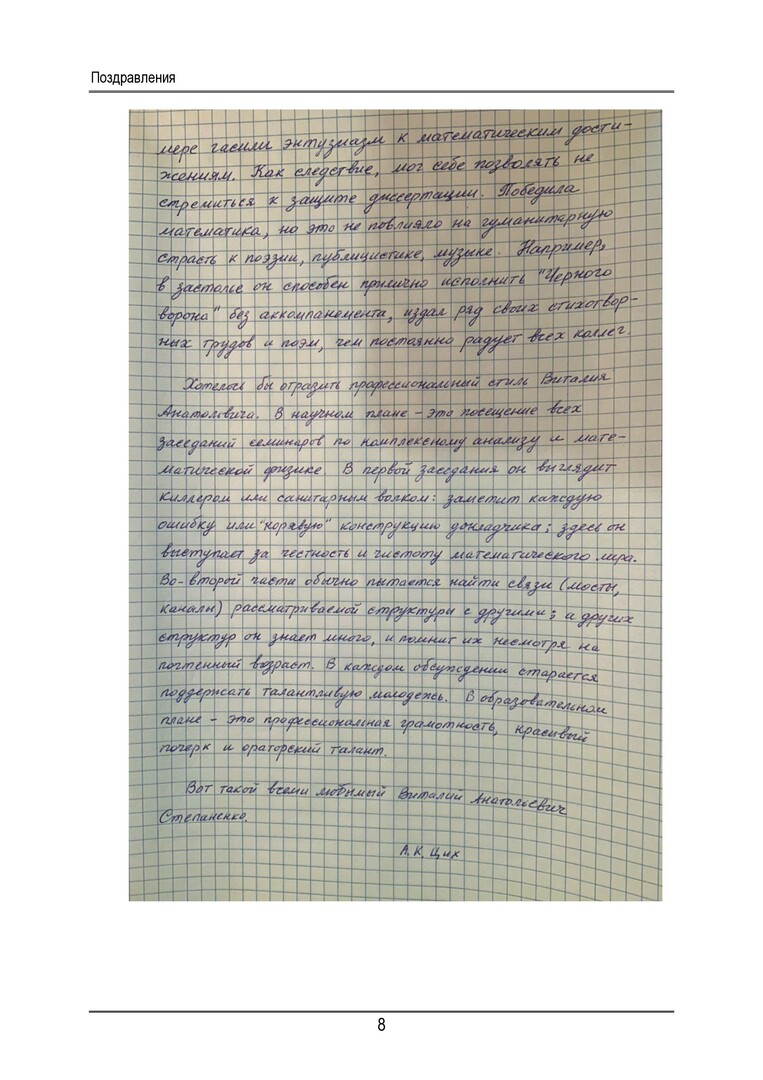 Поздравления
мере гасили энтузиазм к математическим дости-
жениям. Как следствие, мог себе позволять не
стремиться к защите диссертации. Победила
математика, но это не повлияло на гуманитарную
страсть к поэзии, публицистике, музыке. Например,
в застолье он способен прилично исполнить "Черного
ворона" без аккомпанемента, издал ряд своих стихотвор-
ных трудов и поэм, чем постоянно радует всех коллег.
Хотелось бы отразить профессиональный стиль Виталия
Анатольевича. В научном плане – это посещение всех
заседаний семинаров по комплексному анализу и мате-
матической физике. В первой заседания он выглядит
киллером или санитарным волком: заметит каждую
ошибку или "корявую" конструкцию докладчика; здесь он
выступает за честность и чистоту математического мира.
Во-второй части обычно пытается найти связи (мосты,
каналы) рассматриваемой структуры с другими; а других
структур он знает много, и помнит их несмотря на
почтенный возраст. В каждом обсуждении старается
поддержать талантливую молодежь. В образовательном
плане – это профессиональная грамотность, красивый
почерк и ораторский талант.
Вот такой всеми любимый Виталий Анатольевич
Степаненко.
А.К. Цих
8